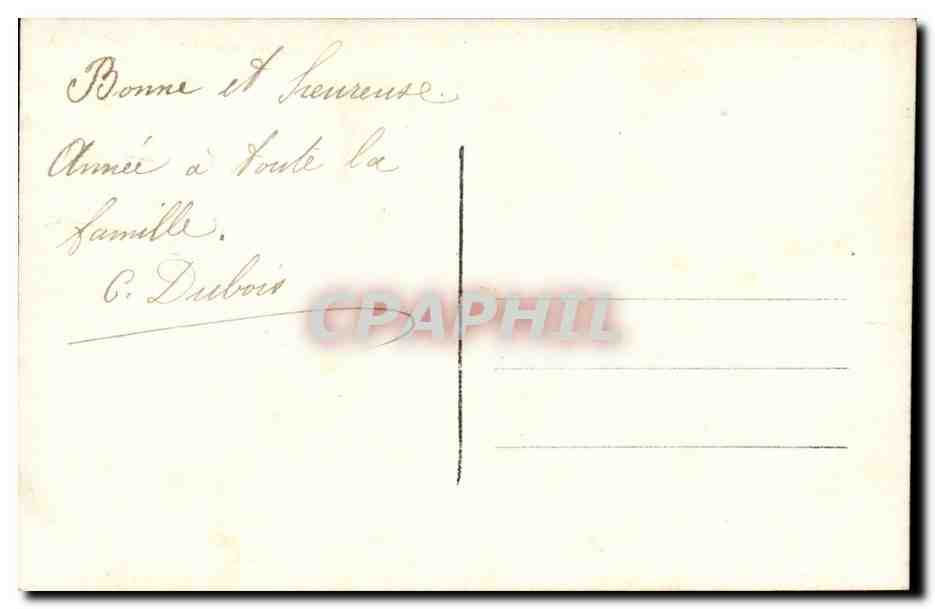 Bonne et heureuse
Année à toute la
famille.
C. Dubois
CPAPHIL